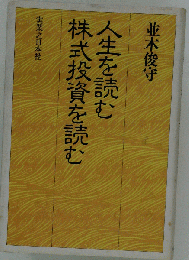 並木俊守
人生を読む
株式投資を読む